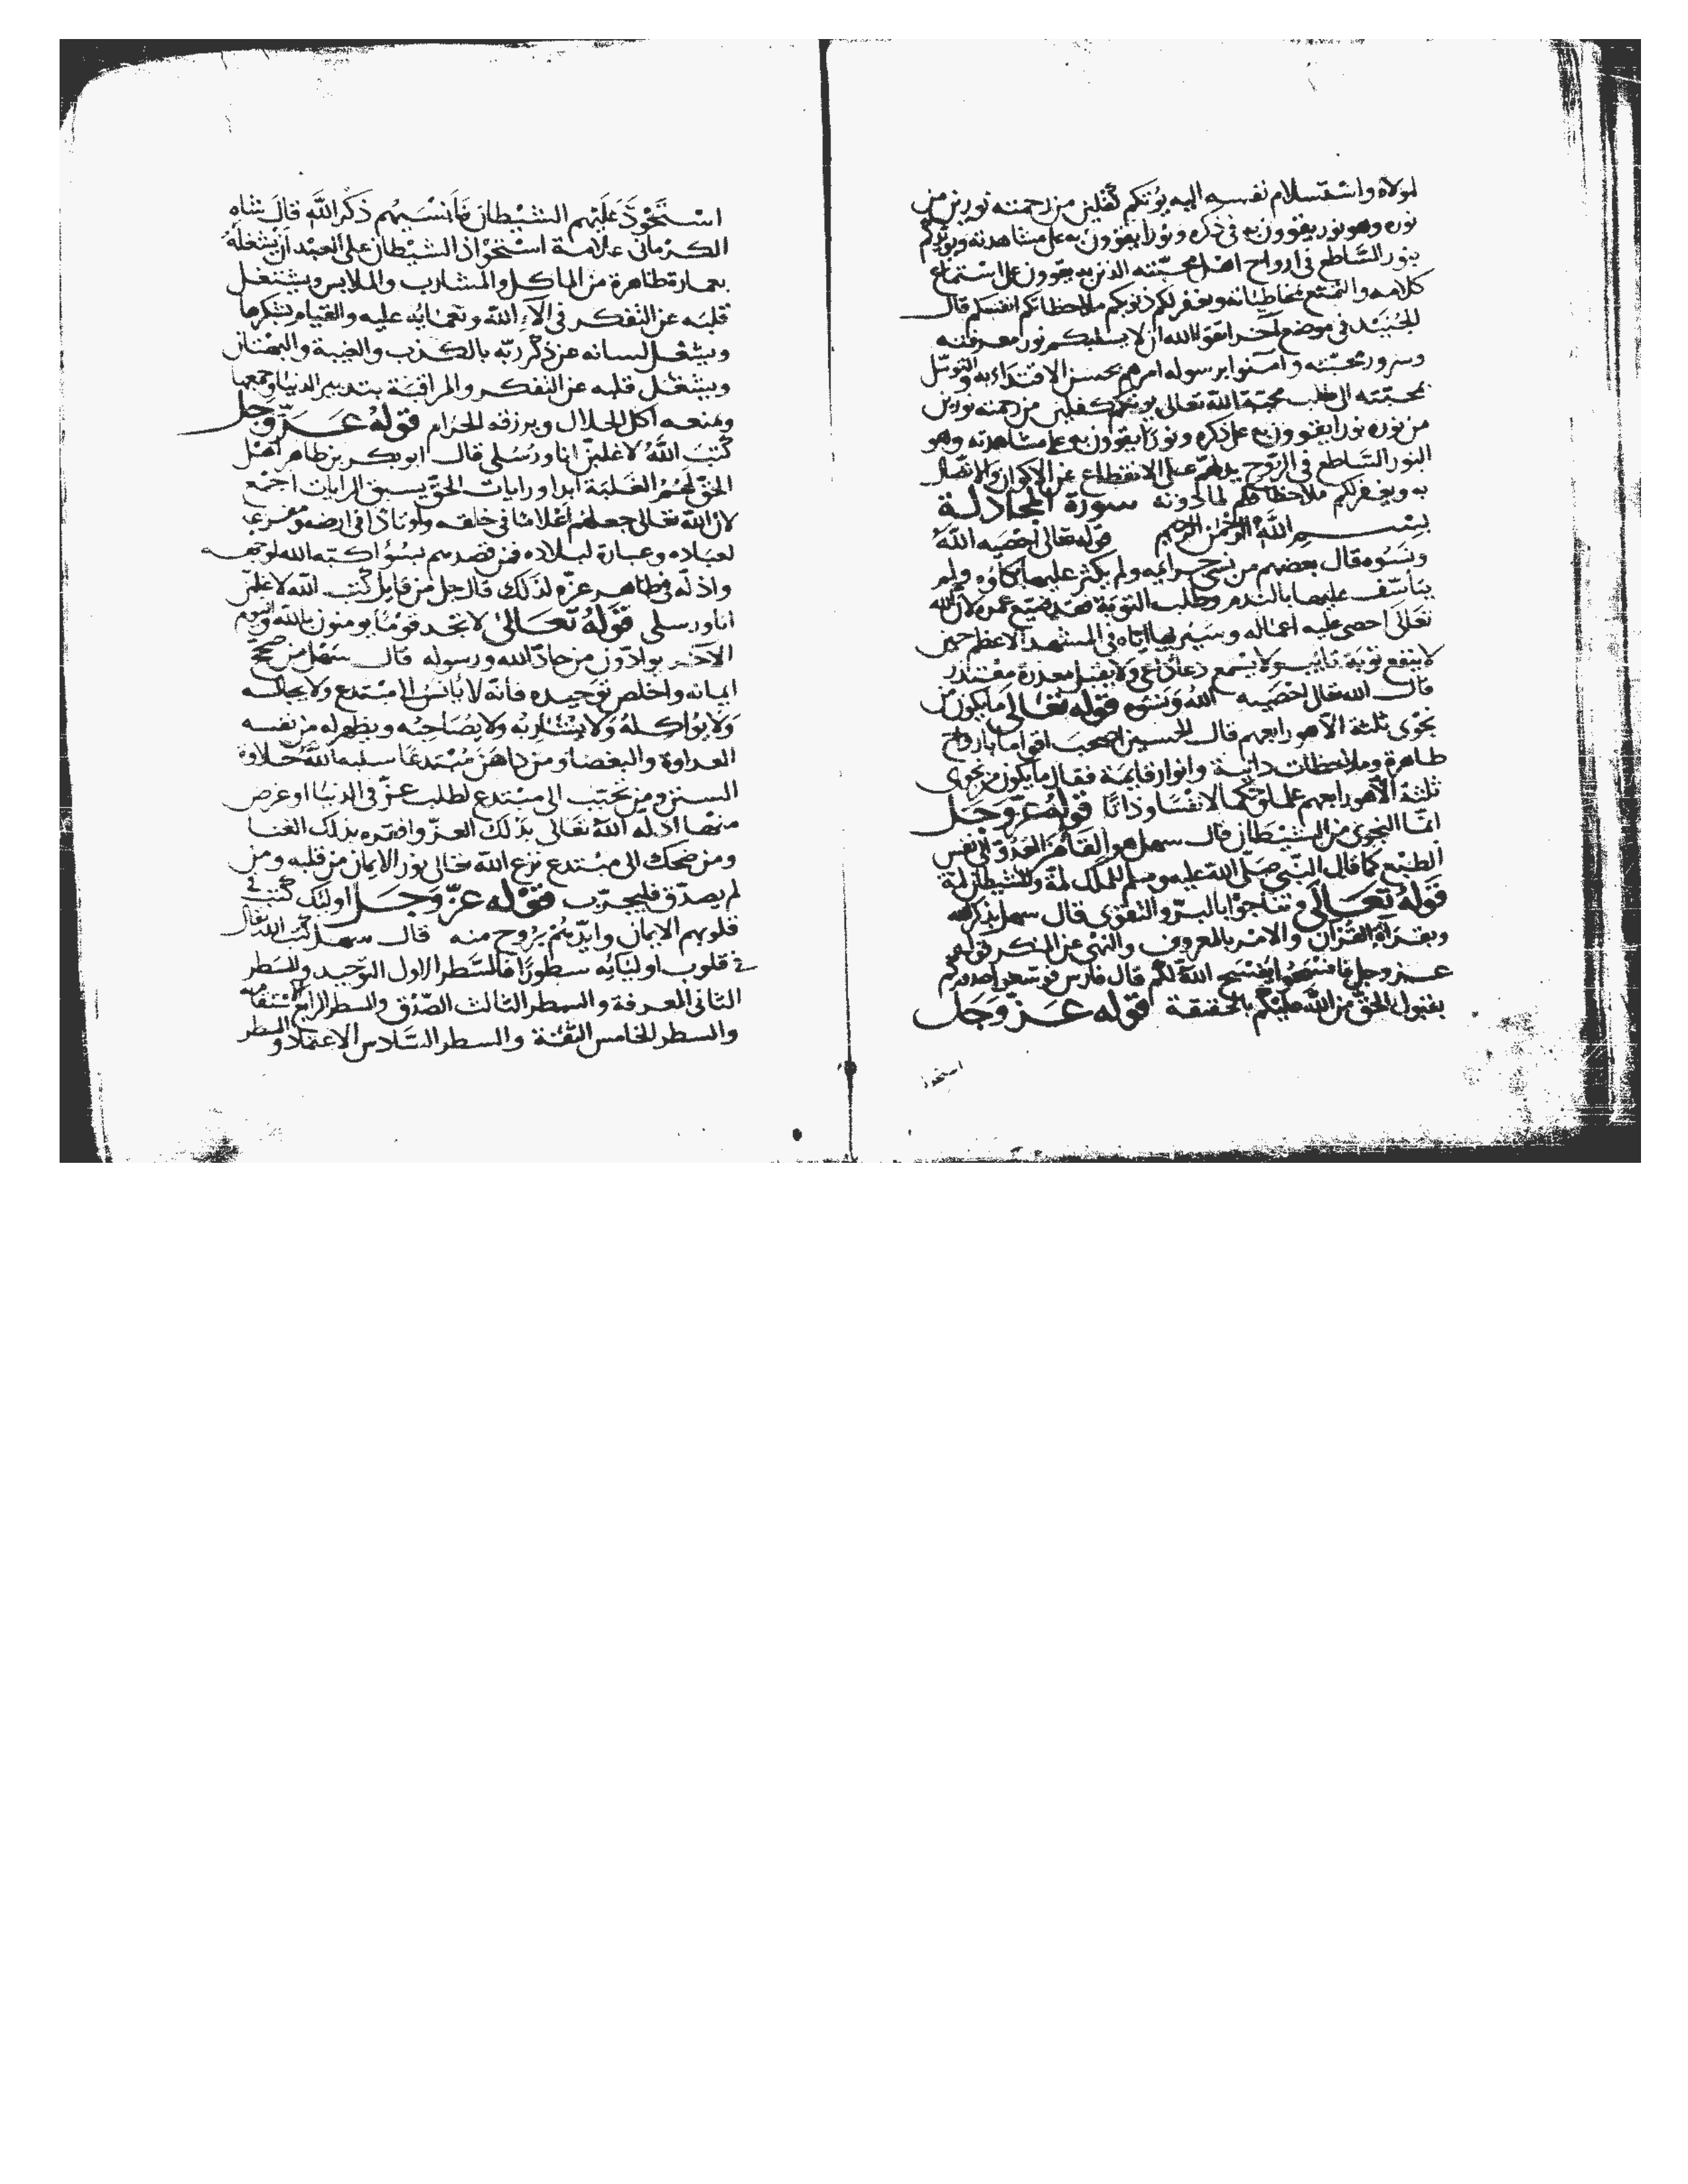 لمولاه واستسلام نفسه اليه يؤتكم كفلين من رحمته نورين من
نوره وهو نور يقوون به في ذكره ونورا يقوون به على مشاهدته ويؤيدكم
بنور الساطع في ارواح اهل محبته الذين به يقوون على استماع
كلامه والتمتع بمخاطباته ويغفر لكم ذنوبكم ملاحظاتكم انفسكم قال
الجنيد في موضع آخر اتقوا الله ان لا يسلبكم نور معرفته
وسرور محبته وامنوا برسوله امرهم بحسن الاقتداء به والتوسل
بمحبته الى طلب محبة الله تعالى يؤتكم كفلين من رحمته نورين
من نوره نورا يقوون به على ذكره ونورا يقوون به على مشاهدته وهو
النور الساطع في الروح يدلهم على الانقطاع عن الاكوان والاتصال
به ويغفر لكم ملاحظاتكم لما دونه سورة المجادلة
بسم الله الرحمن الرحيم قوله تعالى احصيه الله
ونسوه قال بعضهم من نسي جرايمه ولم يكثر عليها بكاؤه ولم
يتأسف عليها بالندم وطلب التوبة فقد ضيع عمره لان الله
تعالى احصى عليه اعماله وسيريها اياه في المشهد الاعظم حين
لا ينفع توبة تايب ولا يسمع دعا داعي ولا يقبل معذرة معتذر
قال الله تعالى احصيه الله ونسوه قوله تعالى ما يكون من
نجوى ثلثة الا هو رابعهم قال الحسين اصحب اقواما بارواح
طاهرة وملاحظات دايمة وانوار قايمة فقال ما يكون من نجوى
ثلثة الا هو رابعهم علما وحكما لا نفسا وذاتا قوله عز وجل
انما النجوى من الشيطان قال سهل هو القاهر العدو الى نفس
الطبع كما قال النبي صلى الله عليه وسلم للملك لمة وللشيطان لمة
قوله تعالى وتناجوا بالبر والتقوى قال سهل بذكر الله
وبقراة القران والامر بالمعروف والنهي عن المنكر قوله
عز وجل فافسحوا يفسح الله لكم قال فارس صدوركم
بقبول الحق من الله عليكم بالحقيقة قوله عز وجل
استحوذ
استحوذ عليهم الشيطان فأنسيهم ذكر الله قال شاه
الكرماني علامة استحواذ الشيطان على العبد ان يشغله
بعمارة ظاهره من المآكل والمشارب والملابس ويشتغل
قلبه عن التفكر في آلاء الله ونعمايه عليه والقيام بشكرها
ويشغل لسانه عن ذكر ربه بالكذب والغيبة والبهتان
ويشغل قلبه عن التفكر والمراقبة بتدبير الدنيا وجمعها
ويمنعه اكل الحلال ويرزقه الحرام قوله عز وجل
كتب الله لاغلبن انا ورسلي قال ابو بكر بن طاهر اهل
الحق لهم الغلبة ابدا ورايات الحق يسبق الرايات اجمع
لان الله تعالى جعلهم اعلاما في خلقه واوتادا في ارضه ومفزعا
لعباده وعمارة لبلاده فمن قصدهم بسوء اكبه الله لوجهه
واذله في ظاهر عزه لذلك قال جل من قايل كتب الله لاغلبن
انا ورسلي قوله تعالى لا تجد قوما يومنون بالله واليوم
الآخر يوادون من حاد الله ورسوله قال سهل من صحح
ايمانه واخلص توحيده فانه لا يأنس الى مبتدع ولا يجالسه
ولا يؤاكله ولا يشاربه ولا يصاحبه ويظهر له من نفسه
العداوة والبغضا ومن داهن مبتدعا سلبه الله حلاوة
السنن ومن تحبب الى مبتدع لطلب عز في الدنيا او عرض
منها اذله الله تعالى بذلك العز وافقره بذلك الغنا
ومن ضحك الى مبتدع نزع الله تعالى نور الايمان من قلبه ومن
لم يصدق فليجرب قوله عز وجل اوليك كتب في
قلوبهم الايمان وايدهم بروح منه قال سهل كتب الله تعالى
في قلوب اوليايه سطورا فالسطر الاول التوحيد والسطر
الثاني المعرفة والسطر الثالث الصدق والسطر الرابع الاستقامة
والسطر الخامس الثقة والسطر السادس الاعتماد والسطر